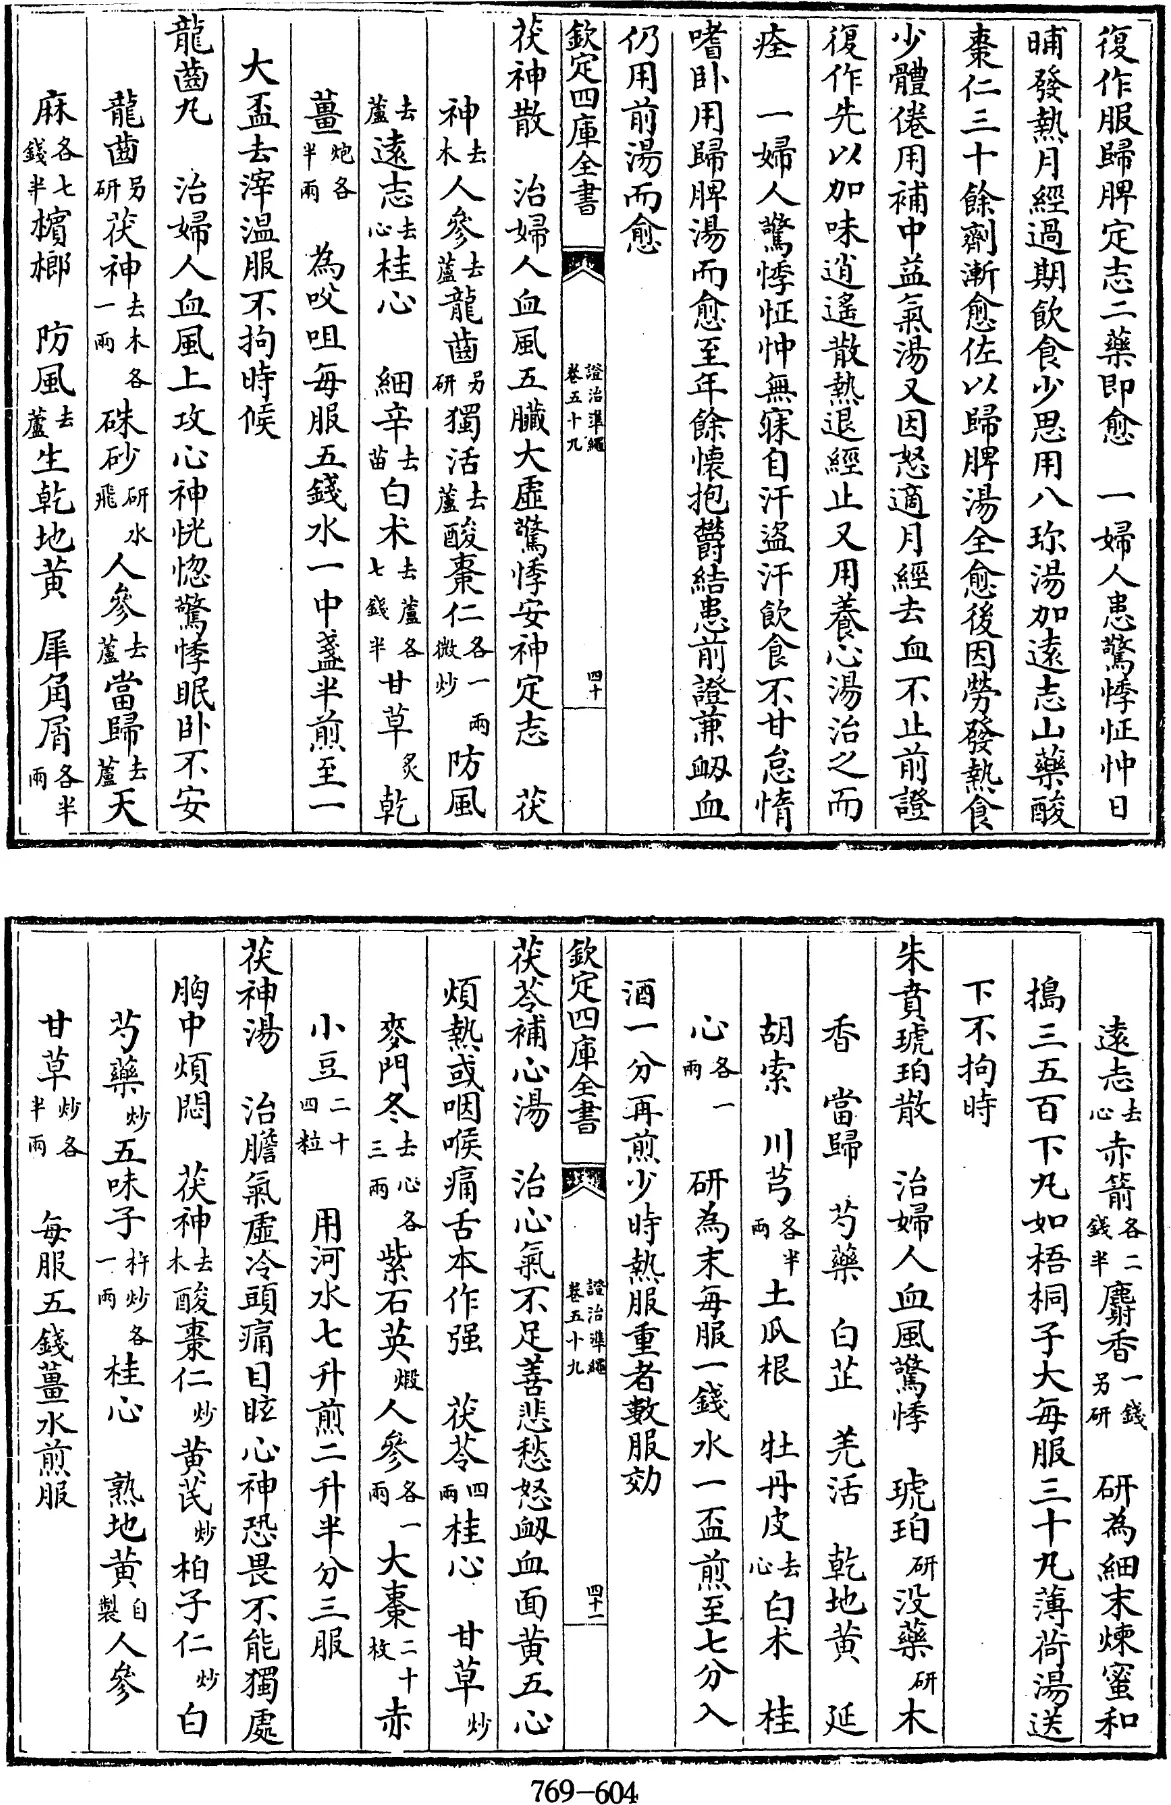 復作服歸脾定志二藥即愈　一婦人患驚悸怔忡日
晡發熱月經過期飲食少思用八珍湯加遠志山藥酸
棗仁三十餘劑漸愈佐以歸脾湯全愈後因勞發熱食
少體倦用補中益氣湯又因怒適月經去血不止前證
復作先以加味逍遙散熱退經止又用養心湯治之而
痊　一婦人驚悸怔忡無寐自汗盜汗飲食不甘怠惰
嗜卧用歸脾湯而愈至年餘懷抱欝結患前證兼衂血
仍用前湯而愈
欽定四庫全書　證治準繩卷五十九　四十
茯神散　治婦人血風五臟大虛驚悸安神定志　茯
神去木人參去蘆龍齒另研獨活去蘆酸棗仁各一兩微炒防風
去蘆遠志去心桂心　細辛去苗白术去蘆各七錢半甘草炙乾
薑炮各半兩　為㕮咀每服五錢水一中盞半煎至一
大盃去滓温服不拘時候
龍齒丸　治婦人血風上攻心神恍惚驚悸眠卧不安
龍齒另研茯神去木各一兩硃砂研水飛人參去蘆當歸去蘆天
麻各七錢半檳榔　防風去蘆生乾地黃　犀角屑各半兩
遠志去心赤箭各二錢半麝香一錢另研　研為細末煉蜜和
搗三五百下丸如梧桐子大每服三十丸薄荷湯送
下不拘時
朱賁琥珀散　治婦人血風驚悸　琥珀研没藥研木
香　當歸　芍藥　白芷　羌活　乾地黃　延
胡索　川芎各半兩土瓜根　牡丹皮去心白术　桂
心各一兩　研為末每服一錢水一盃煎至七分入
酒一分再煎少時熱服重者數服効
欽定四庫全書　證治準繩卷五十九　四十一
茯苓補心湯　治心氣不足善悲愁怒衂血面黃五心
煩熱或咽喉痛舌本作强　茯苓四兩桂心　甘草炒
麥門冬去心各三兩紫石英煅人參各一兩大棗二十枚赤
小豆二十四粒　用河水七升煎二升半分三服
茯神湯　治膽氣虛冷頭痛目眩心神恐畏不能獨處
胸中煩悶　茯神去木酸棗仁炒黃芪炒柏子仁炒白
芍藥炒五味子杵炒各一兩桂心　熟地黃自製人參
甘草炒各半兩　每服五錢薑水煎服
769-604